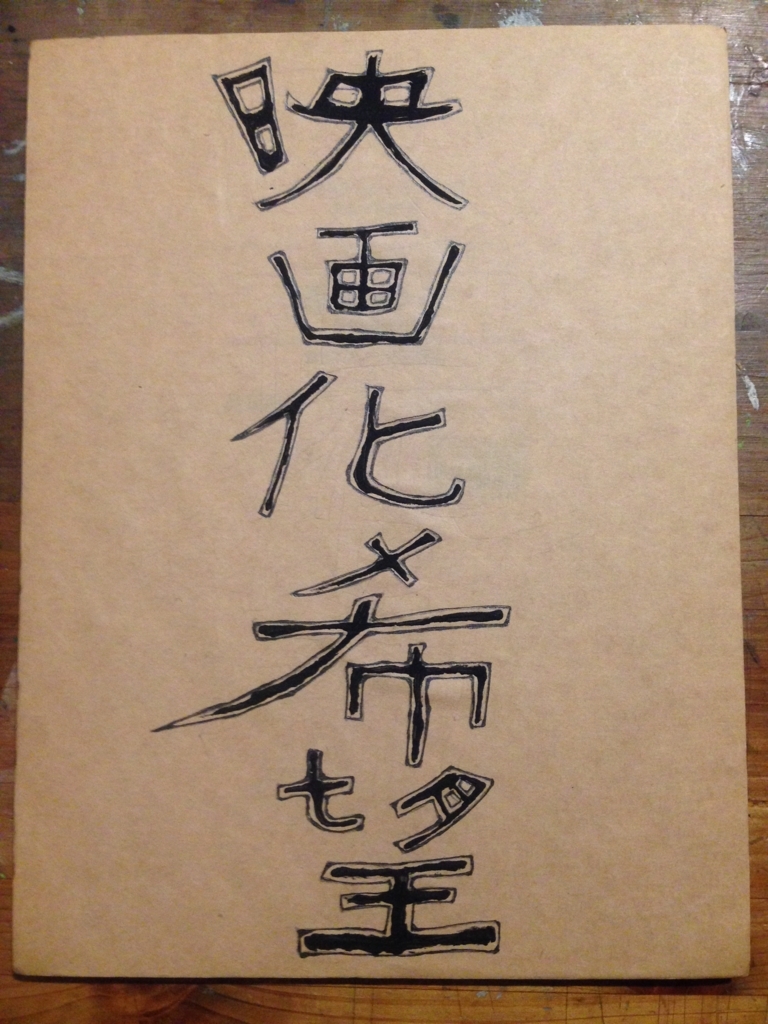 映画化希望